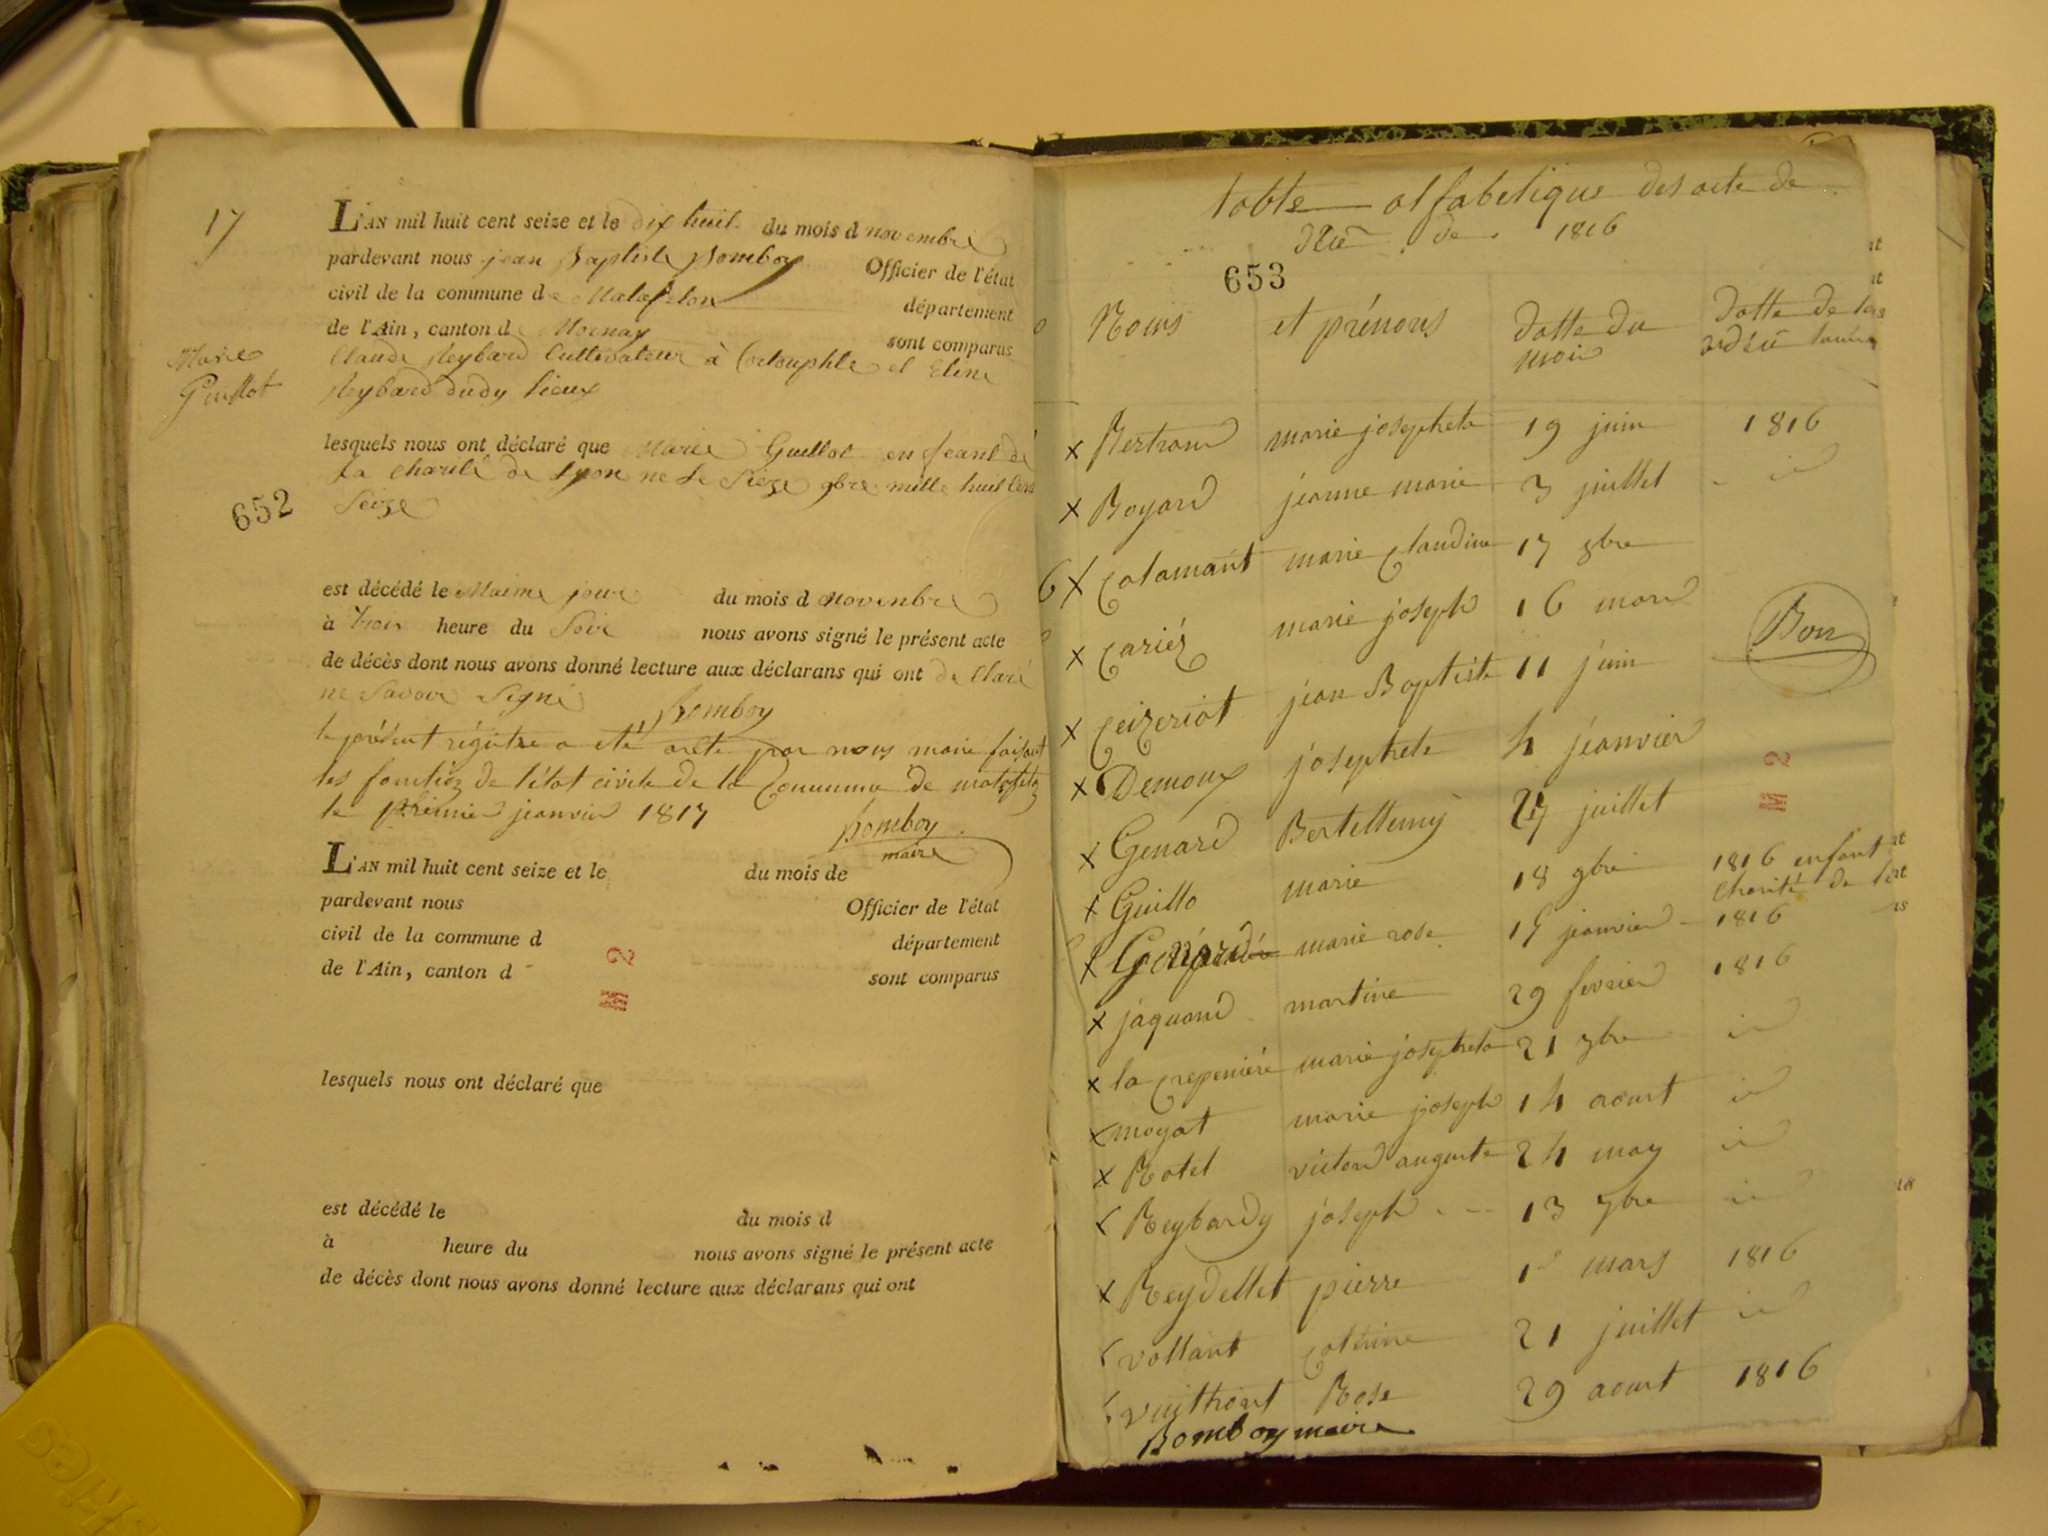 17
L'AN mil huit cent seize et le dix huit du mois d novembre
pardevant nous jean Baptiste Bomboy Officier de l'état
civil de la commune de Matafelon département
de l'Ain, canton d Mornay sont comparus
Claude Reybard Cultivateur à Corcouphle et
Reybard dudy lieux
Marie
Guillot
lesquels nous ont déclaré que Marie Guillot enfeant de
la charité de Lyon ne le Sieze 9bre mille huit Cent
Seize
652
est décédé le Maime jour du mois d novembre
à heure du Soir nous avons signé le présent acte
de décès dont nous avons donné lecture aux déclarans qui ont de Claré
ne Savoir Signé
Bomboy
le présent régistre a été areté par nous maire faisant
les fonction de l'état civile de la Commune de matafelon
le premier jeanvier 1817
Bomboy
maire
L'AN mil huit cent seize et le du mois de
pardevant nous Officier de l'état
civil de la commune d département
de l'Ain, canton d sont comparus
M 2
lesquels nous ont déclaré que
est décédé le du mois d
à heure du nous avons signé le présent acte
de décès dont nous avons donné lecture aux déclarans qui ont
table alfabetique des acte de
de 1816
653
Noms et prénoms datte du mois datte de
Bertrand marie josephete 19 juin 1816
x Boyard jeanne marie 3 juillet id
6 x Catamant marie Claudine 17 8bre
x Cariéz marie joseph 16 mard
Bon
x Ceizeriat jean Baptiste 11 juin
x Demoux josephete 4 jeanvier
x Genard Bertellemy 27 juillet
M 2
x Guillo marie 18 9bre 1816 enfant
charité de
x Génard marie rose 15 jeanvier 1816
x jaquand martine 29 fevrier 1816
x la Crepeniere marie josephete 21 9bre id
x moyat marie joseph 14 aoust id
x Rotet victord auguste 24 may id
x Reybardy joseph 13 7bre id
x Reydellet pierre 1er mars 1816
x vollant Caterine 21 juillet id
vuithont Rose 29 aoust 1816
Bomboy maire